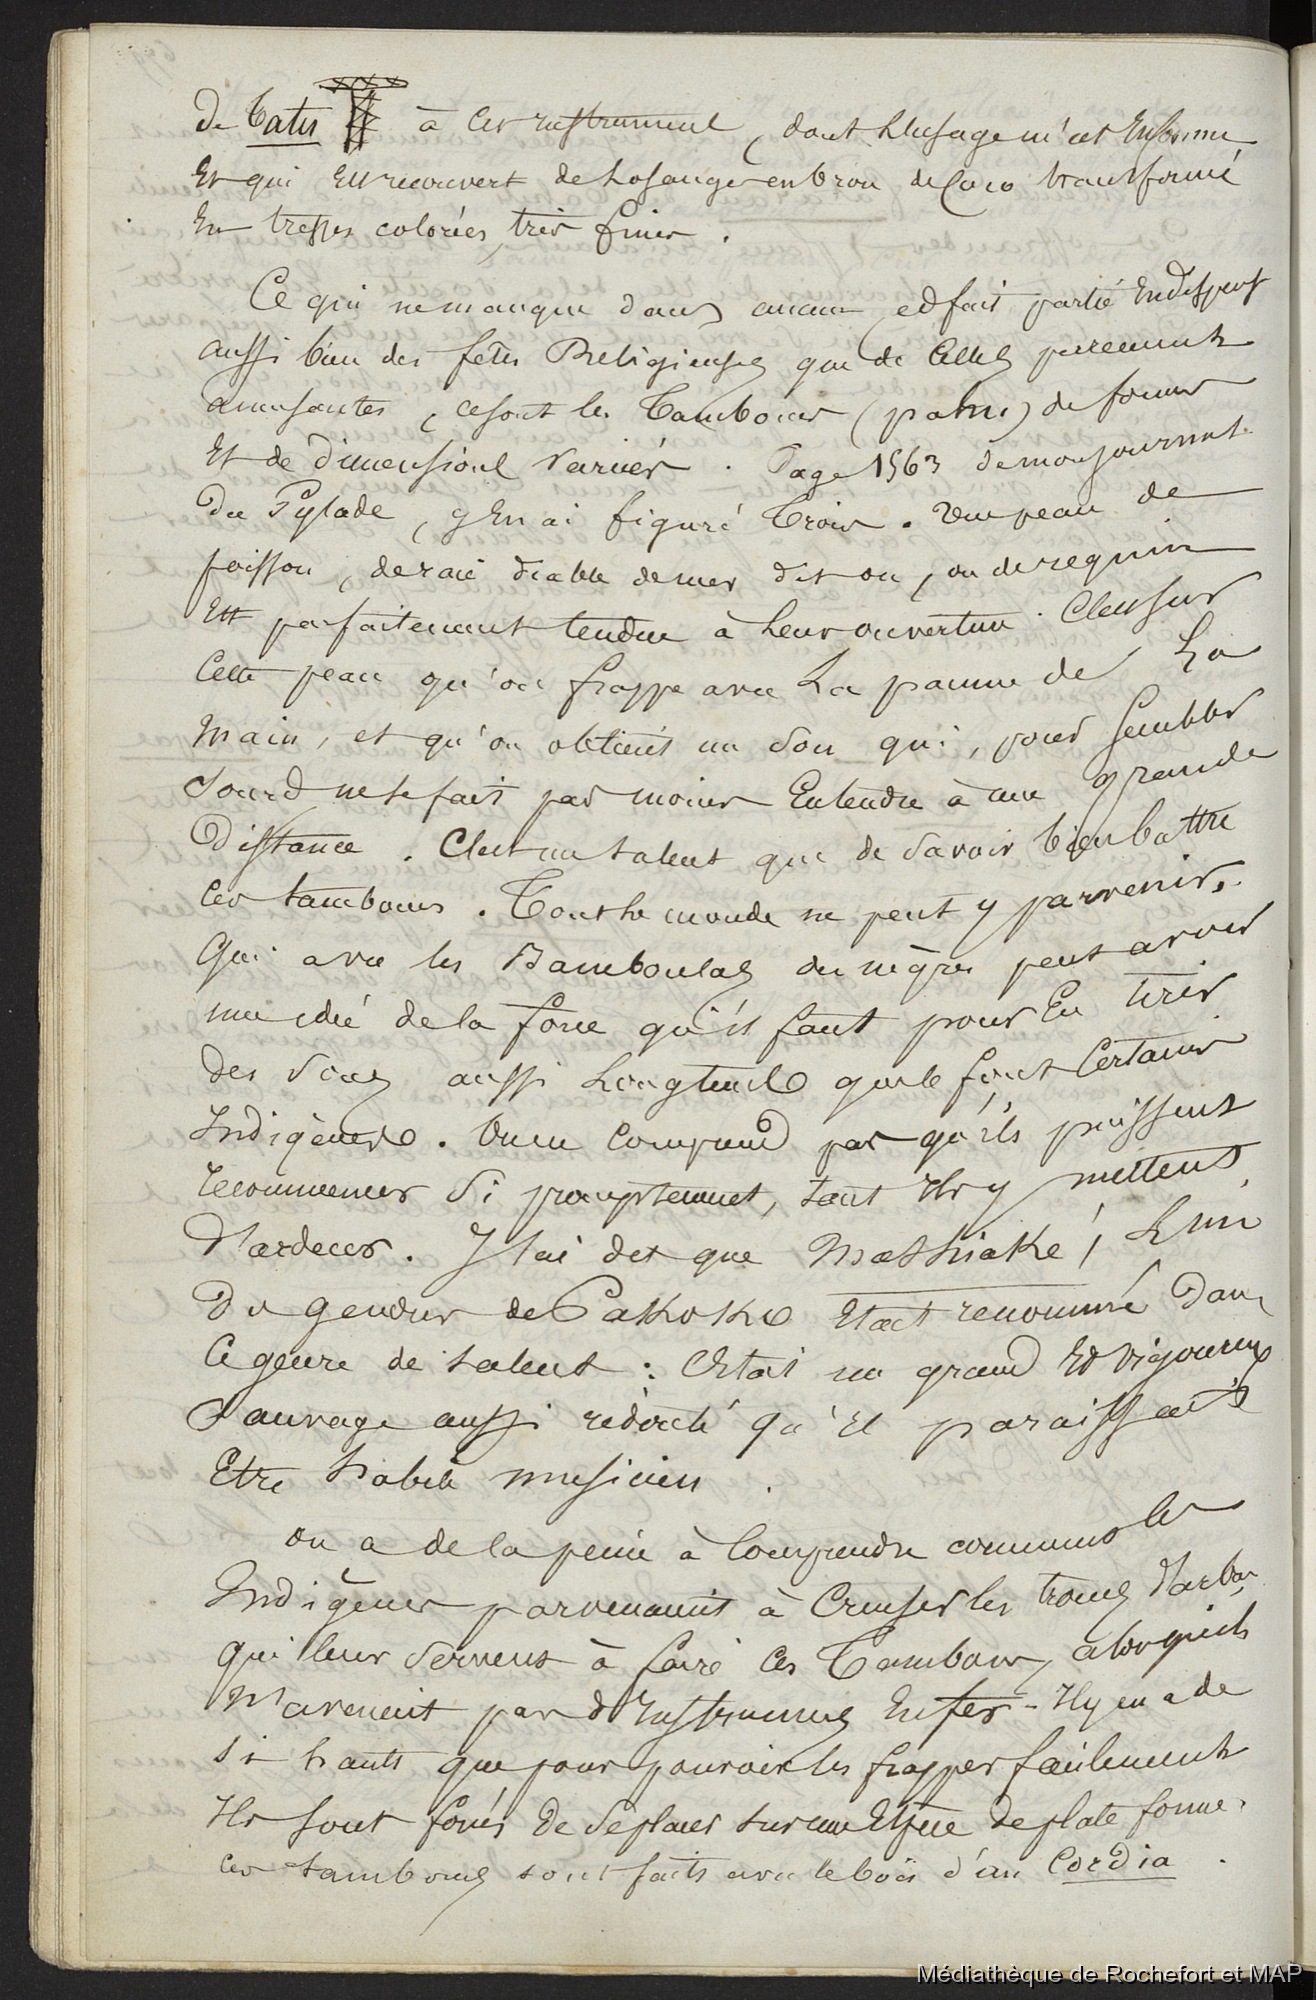 de tatis à ces instrument, dont l'usage m'est Inconnu
Et qui Est recouvert de losanges en brou de Coco transformé
En tresses colorées très fines.
Ce qui ne manque dans aucun et fait partie
aussi bien des fêtes Religieuses que de Celles purement
amusantes, ce sont les Tambours (pahu) de formes
Et de dimensions Variées. Page 1563 de mon journal
Du Pylade, j'En ai figuré trois. Une peau de
poisson, de raie diable de mer dit on, ou de requin
Est parfaitement tendue à leur ouverture. C'est sur
Cette peau qu'on frappe avec La paume de La
main, et qu'on obtient un son qui, pour sembler
sourd ne se fait pas moins Entendre à une grande
Distance. C'est un talent que de savoir bien battre
Ces tambours. Tout le monde ne peut y parvenir.
Qui a vu les Bamboulas des nègres peut avoir
une idée de la force qu'il faut pour En tirer
des sons aussi Longtemps que le font Certains
Indigènes. On ne Comprend pas qu'ils puissent
recommencer si promptement, tant Ils y mettent
D'ardeur. J'ai dit que Mathiaké, L'un
Des gendres de Pakoko Etait renommé Dans
Ce genre de talent : C'Etait un grand Et vigoureux
Sauvage aussi redouté qu'Il paraissait
Etre habile musicien.
On a de la peine à Comprendre comment les
Indigènes parvenaient à Creuser les troncs d'arbre
qui leur servent à faire Ces Tambours, alors qu'ils
N'avaient pas d'Instruments En fer - Il y en a de
si hauts que pour pouvoir les frapper facilement
Ils sont forcés De se placer sur une Espèce de plate forme.
Ces tambours sont faits avec le bois d'un Cordia.
Médiathèque de Rochefort et MAP